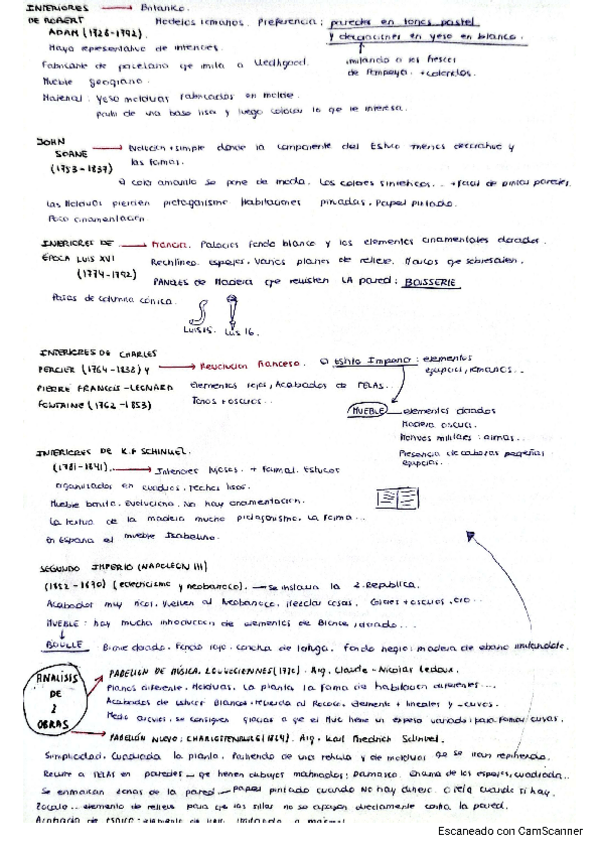 INTERIORES → Británico.
DE ROBERT Modelos romanos. Preferencia: paredes en tonos pastel
ADAM (1728-1792). y decoraciones en yeso en blanco.
Mayo representativo de interiores. imitando a los frescos
Fabricante de porcelana que imita a Wedgwood. de Pompeya. + coloretos.
Mueble georgiano.
Material: Yeso molduras fabricadas en molde.
parte de una base lisa y luego colocar lo que te interesa.
JOHN → Evolución + simple donde la componente del Estuco menos decorativo y
SOANE las formas.
(1753-1837) color amarillo se pone de moda. Los colores sintéticos.. + fácil de pintar paredes.
Las Molduras pierden protagonismo Habitaciones pintadas. Papel pintado.
Poca ornamentación.
INTERIORES DE → Francia. Palacios fondo blanco y los elementos ornamentales dorados.
ÉPOCA LUIS XVI Rectilíneo. espejos. Varios planos de relieve. Marcos que sobresalen.
(1774-1792) PANELES de Madera que revisten LA pared: BOISSERIE
Patas de columna cónica.
Luis 15. Luis 16.
INTERIORES DE CHARLES
PERCIER (1764-1838) y → Revolución francesa. Estilo Imperio: elementos
egipcios, romanos...
PIERRE FRANCOIS-LEONARD Elementos rojos, Acabados de TELAS.
FONTAINE (1762-1853) Tonos + oscuros.. MUEBLE elementos dorados
Madera oscura.
Motivos militares: armas...
Presencia de cabezas pequeñas
egipcias..
INTERIORES DE K.F SCHINKEL.
(1781-1841). → Interiores + formal. Estucos
organizados en cuadros. techos lisos.
Mueble bonito. Evoluciona. No hay ornamentación.
La textura de la madera mucho protagonismo. La forma...
En España el mueble Isabelino.
SEGUNDO IMPERIO (NAPOLEON III)
(1852-1870) (eclecticismo y neobarroco). → Se instaura la 2. Republica.
Acabados muy ricos. Vuelven al Neobarroco. Mezclar cosas. Colores + oscuros, oro...
MUEBLE: hay mucha introducción de elementos de Bronce, dorado...
BOULLE Bronce dorado. Fondo rojo. concha de tortuga. Fondo negro: madera de ebano imitandole.
ANALISIS DE 2 OBRAS
PABELLON DE MÚSICA. LOUVECIENNES (1770). Arq. Claude-Nicolas Ledoux.
Planos diferente. Molduras. La planta la forma de habitacion diferentes...
Acabados de estuco Blancos. recuerda al Rococo. elemento + lineales y - curvos.
Medio arcos: se consigues gracias a que el Muro tiene un espesor variado para formar curvas.
PABELLÓN NUEVO: CHARLOTTENBURG (1824). Arq. Karl Friedrich Schinkel.
Simplicidad. Cuadrada la planta. Partiendo de una reticula y de molduras que se iran repitiendo.
Recurre a TELAS en paredes → que tienen dibujos matizados: Damasco. Encima de los espejos, cuadrada..
Se enmarcan zonas de la pared → papel pintado cuando No hay dinero. O tela cuando si hay.
Zocalo.. elemento de relieve para que las sillas no se apoyen directamente contra la pared.
Escaneado con CamScanner